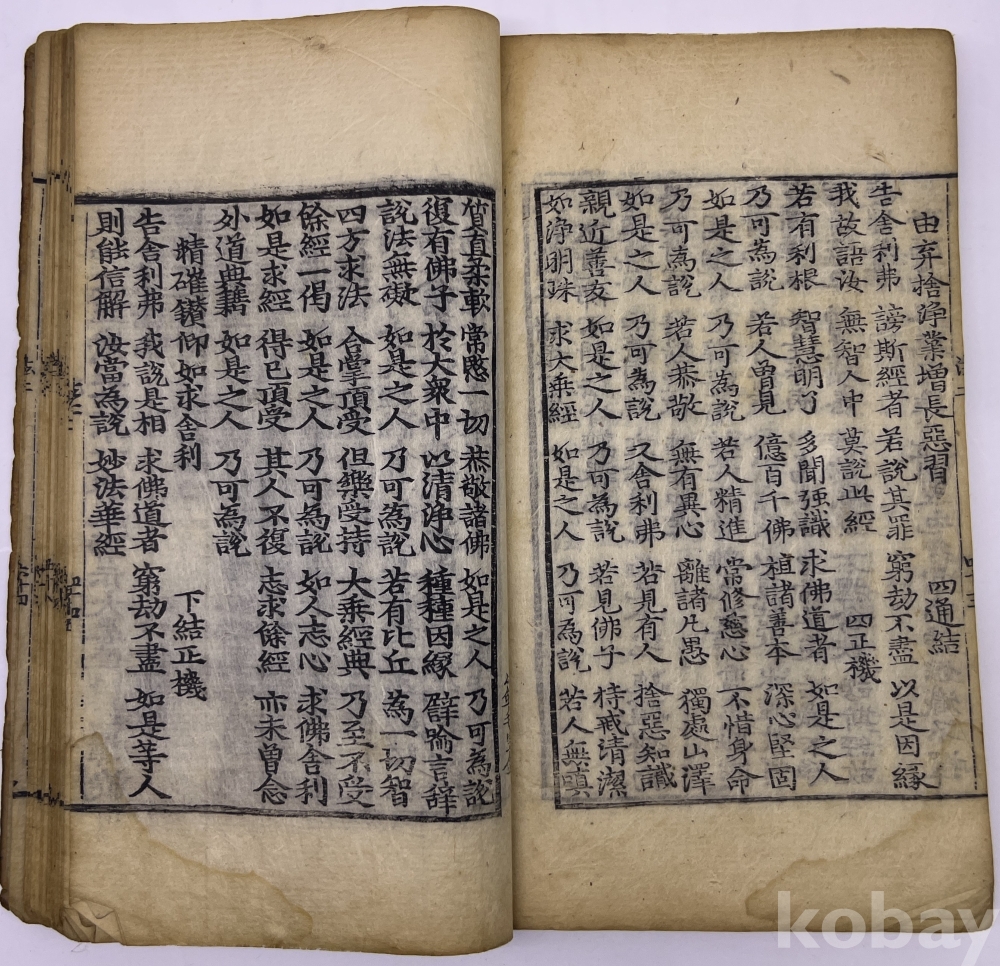 由弃捨淨業增長惡習 四通結
告舍利弗 謗斯經者 若說其罪 窮劫不盡 以是因緣
我故語汝 無智人中 莫說此經 四正機
若有利根 智慧明了 多聞强識 求佛道者 如是之人
乃可為說 若人曾見 億百千佛 植諸善本 深心堅固
如是之人 乃可為說 若人精進 常修慈心 不惜身命
乃可為說 若人恭敬 無有異心 離諸凡愚 獨處山澤
如是之人 乃可為說 又舍利弗 若見有人 捨惡知識
親近善友 如是之人 乃可為說 若見佛子 持戒清潔
如淨明珠 求大乘經 如是之人 乃可為說 若人無嗔
質直柔軟 常愍一切 恭敬諸佛 如是之人 乃可為說
復有佛子 於大衆中 以清淨心 種種因緣 譬喻言辞
說法無礙 如是之人 乃可為說 若有比丘 為一切智
四方求法 合掌頂受 但樂受持 大乘經典 乃至不受
餘經一偈 如是之人 乃可為說 如人志心 求佛舍利
如是求經 得已頂受 其人不復 志求餘經 亦未曾念
外道典籍 如是之人 乃可為說
精磪鑚仰如求舍利 下結正機
告舍利弗 我說是相 求佛道者 窮劫不盡 如是等人
則能信解 汝當為說 妙法華經
kobay